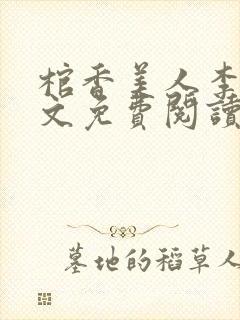 棺香美人李
文免費閱讀
墓地的稻草人